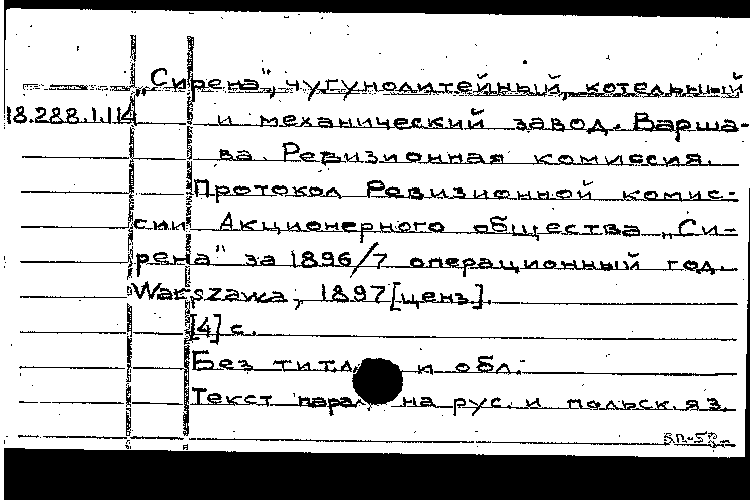 „Сирена", чугунолитейный, котельный
18.288.1.114 и механический завод. Варша-
ва. Ревизионная комиссия.
Протокол Ревизионной комис-
сии Акционерного общества „Си-
рена" за 1896/7 операционный год.
Warszawa, 1897 [ценз].
[4] с.
Без титл. и обл.
Текст парал. на рус. и польск. яз.